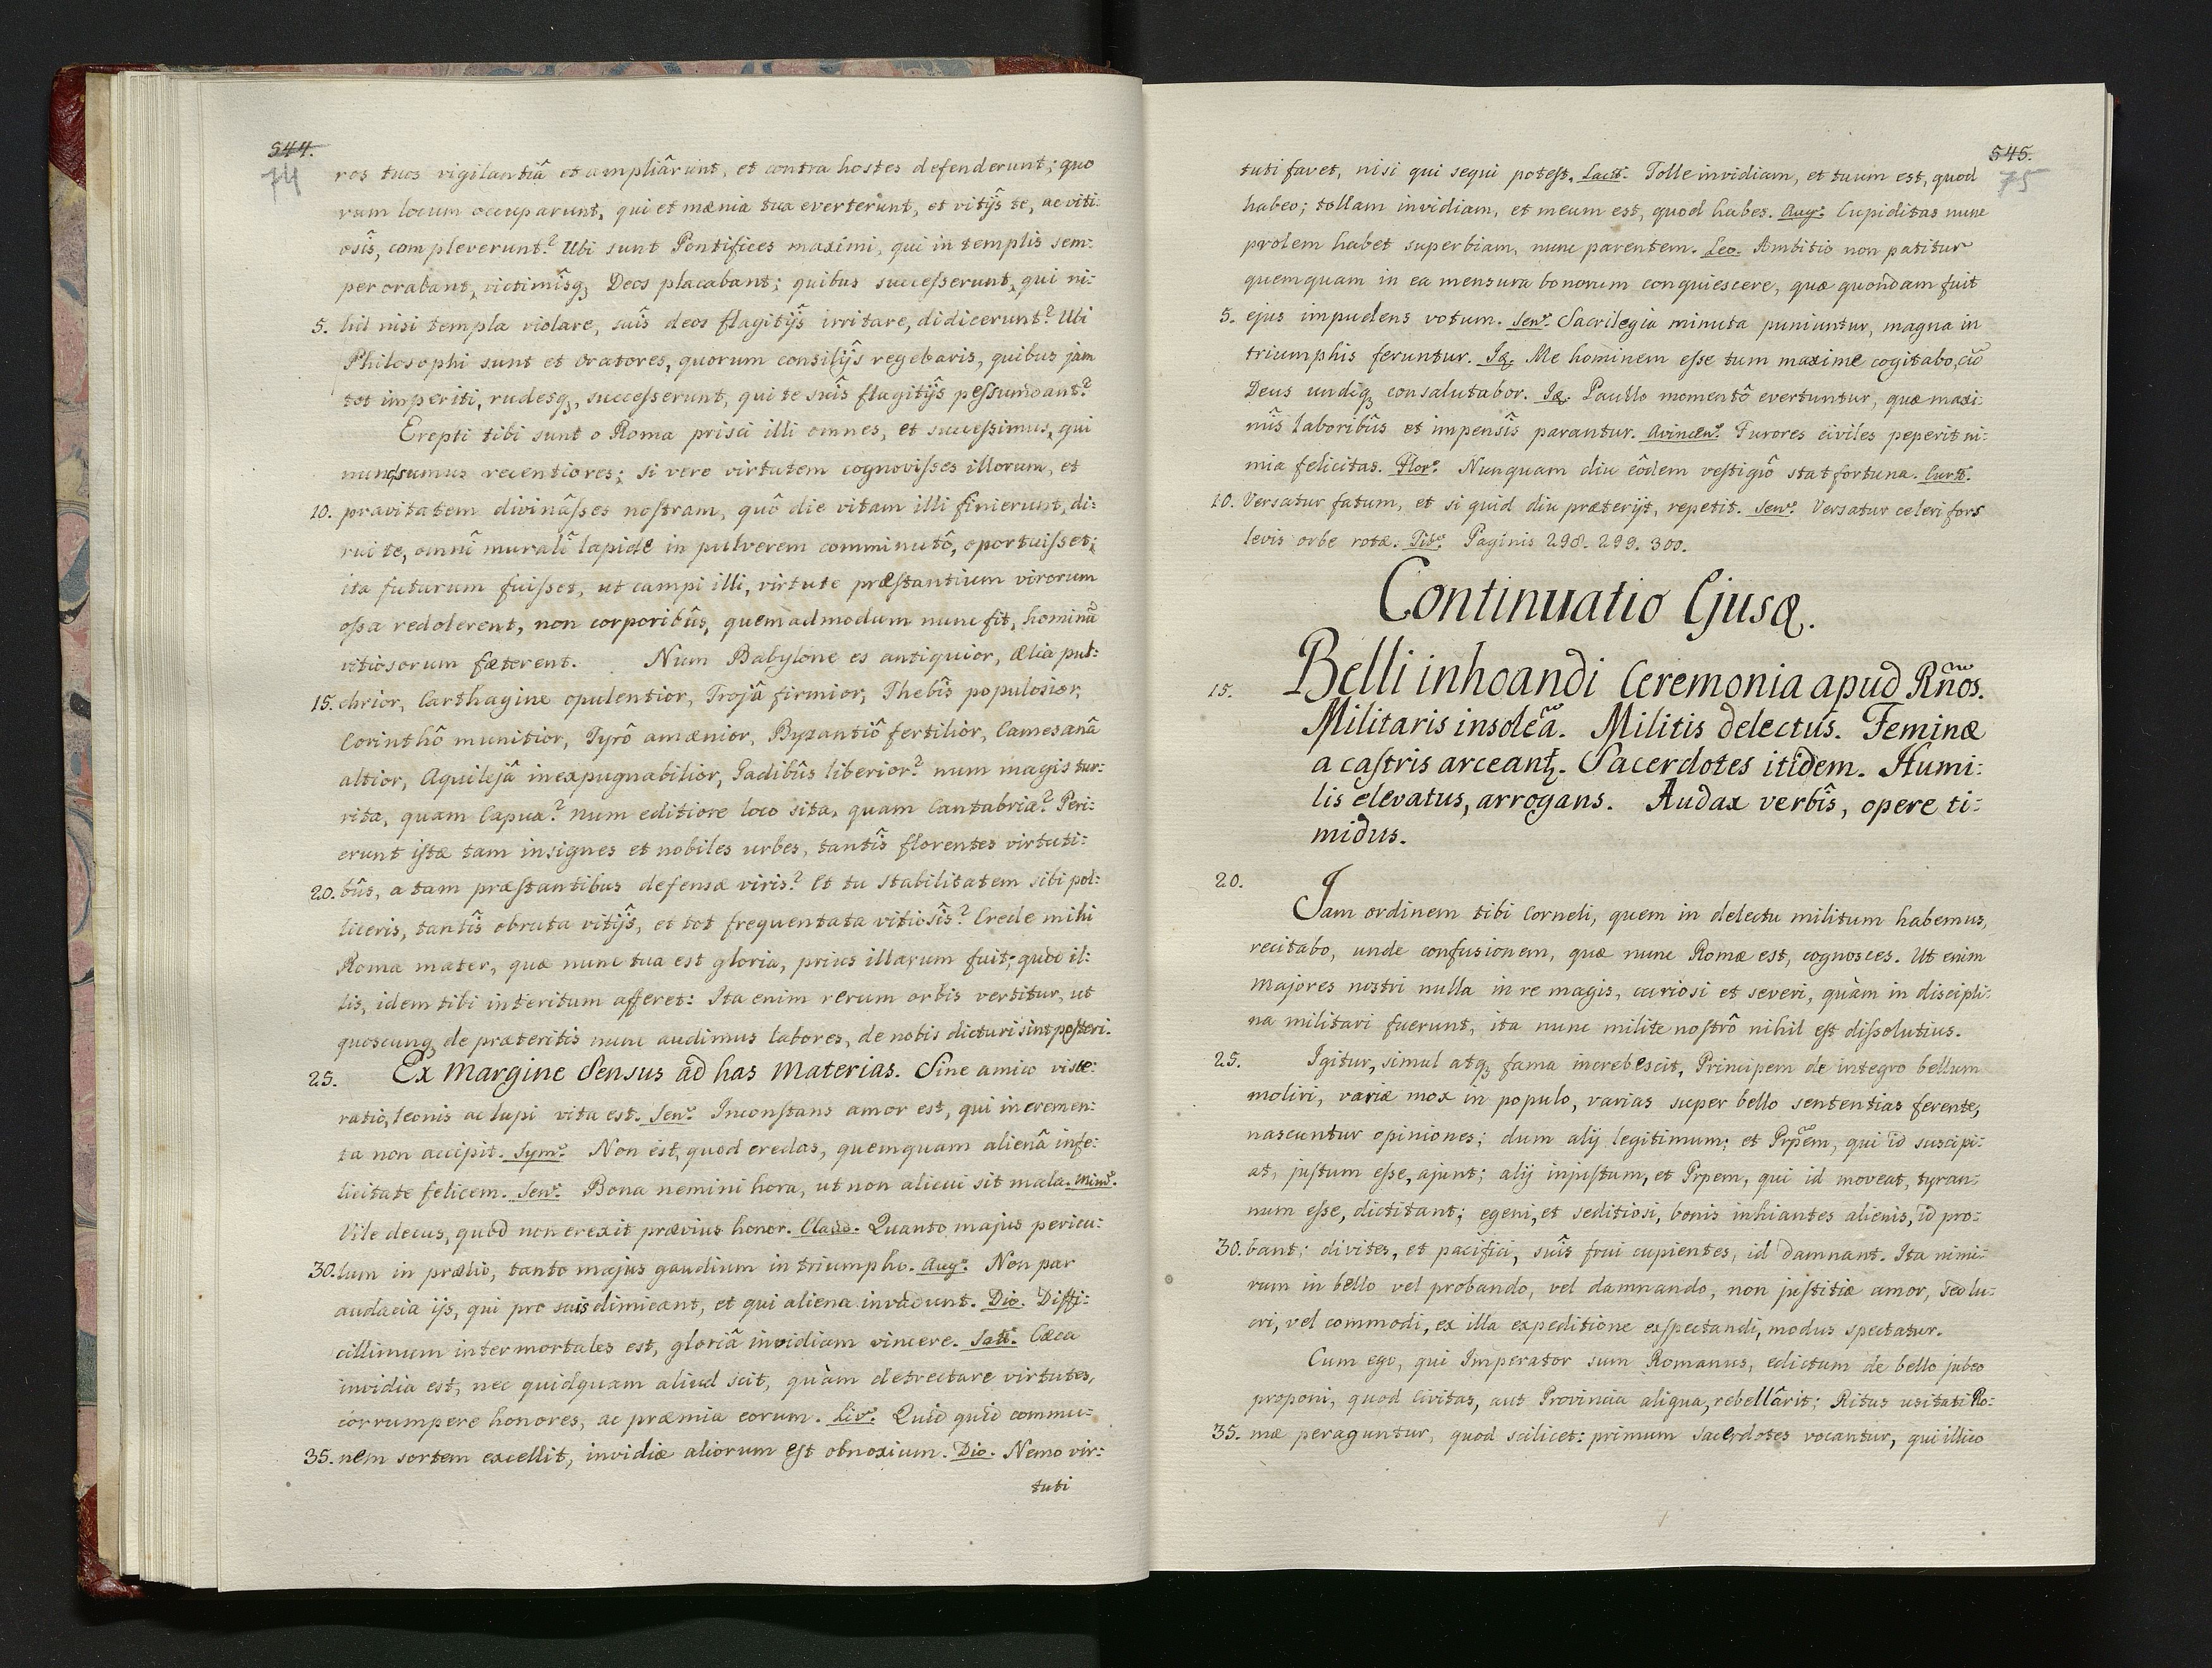 544.
74
ros tuos vigilantiâ et ampliârunt, et contra hostes defenderunt; quo
rum locum occuparunt, qui et mænia tua everterunt, et vitijs te, ac viti:
osîs, compleverunt? Ubi sunt Pontifices maximi, qui in templis sem:
per orabant, victimîsq; Deos placabant; quibus succeſserunt, qui ni:
5. hil nisi templa violare, suîs deos flagitijs irritare, didicerunt? Ubi
Philosophi sunt et Oratores, quorum consilijs regebaris, quibus jam
tot imperiti, rudesq, succeſserunt, qui te suîs flagitijs peſsumdant?
Erepti tibi sunt o Roma prisci illi omnes, et succeſsimus, qui
nunc sumus recentiores; si vere virtutem cognoviſses illorum, et
10. pravitatem divinâſses noſtram, quô die vitam illi finierunt, di:
rui te, omnî muralî lapide in pulverem comminutô, oportuiſset;
ita futurum fuiſset, ut campi illi, virtute præſtantium virorum
oſsa redolerent, non corporibûs, quemadmodum nunc fit, hominũ
vitiosorum fæterent. Num Babylone es antiquior, ælia pul:
15. chrior, Carthagine opulentior, Trojâ firmior, Thebîs populosior,
Corinthô munitior, Tyrô amænior, Byzantiô fertilior, Camesanâ
altior, Aquilejâ inexpugnabilior, Gadibûs liberior? num magis tur:
rita, quam Capua? num editiore loco sita, quam Cantabria? Peri:
erunt iſtæ tam insignes et nobiles urbes, tantîs florentes virtuti:
20. bûs, a tam præſtantibus defensæ viris? Et tu stabilitatem tibi pol:
liceris, tantîs obruta vitijs, et tot frequentata vitiosîs? Crede mihi
Roma mater, quæ nunc tua est gloria, prius illarum fuit; quod il:
lis, idem tibi interitum afferet: Ita enim rerum orbis vertitur, ut
quoscunq de præteritis nunc audimus labores, de nobis dicturi sint poſteri.
25. Ex Margine Sensus ad has Materias. Sine amico visce:
ratio, leonis ac lupi vita est. Sen. Inconſtans amor est, qui incremen:
ta non accipit. Sym. Non est, quod credas, quemquam alienâ infe:
licitate felicem. Sen. Bona nemini hora, ut non alicui sit mala. Min.
Vile decus, quod non erexit prævius honor. Claud. Quanto majus pericu:
30. lum in prælio, tanto majus gaudium in triumpho. Aug. Non par
audacia ijs, qui pro suis dimicant, et qui aliena invadunt. Dio. Diffi:
cillimum inter mortales est, gloriâ invidiam vincere. Sall. Cæca
invidia est, nec quidquam aliud scit, quàm detrectare virtutes,
corrumpere honores, ac præmia eorum. Liv. Quid quid commu:
35. nem sortem excellit, invidiæ aliorum eſt obnoxium. Dio. Nemo vir:
tuti
545.
75
tuti favet, nisi qui sequi poteſt. Tolle invidiam, et tuum est, quod
habeo; tollam invidiam, et meum est, quod habes. Aug. Cupiditas nunc
prolem habet superbiam, nunc parentem. Leo. Ambitio non patitur
quemquam in ea mensura bonorum conquiescere, quæ quondam fuit
5. ejus impudens votum. Sen. Sacrilegia minuta puniuntur, magna in
triumphis feruntur. Iq. Me hominem eſse tum maxime cogitabo, cũ
Deus undiq consalutabor. Iq. Paullo momentô evertuntur, quæ maxi:
mîs laboribûs et impensîs parantur. Furores civiles peperit ni:
mia felicitas. Flor. Nunquam diu eôdem veſtigiô stat fortuna. Curt.
10. Versatur fatum, et si quid diu præterijt, repetit. Sen. Versatur celeri fors
levis orbe rotæ. Tib. Paginis 298. 299. 300.
Continuatio Ejusq.
15. Belli inhoandi Ceremonia apud Rños.
Militaris insolẽa. Militis delectus. Feminæ
a caſtris arceant. Sacerdotes itidem. Humi:
lis elevatus, arrogans. Audax verbîs, opere ti:
midus.
20. Jam ordinem tibi Corneli, quem in delectu militum habemus,
recitabo, unde confusionem, quæ nunc Romæ est, cognosces. Ut enim
majores nostri nulla in re magis, curiosi et severi, quàm in discipli:
na militari fuerunt, ita nunc milite noſtrô nihil eſt diſsolutius.
25. Igitur, simul atq; fama increbescit, Principem de integro bellum
moliri, variæ mox in populo, varias super bello sententias ferente,
nascuntur opiniones; dum alij legitimum; et Prpem, qui id suscipi:
at, juſtum eſse, ajunt; alij injuſtum, et Prpem, qui id moveat, tyran:
num eſse, dictitant; egeni, et seditiosi, bonis inhiantes alienis, id pro:
30. bant; divites, et pacifici, suîs frui cupientes, id damnant. Ita nimi:
rum in bello vel probando, vel damnando, non juſtitiæ amor, sed lu:
cri, vel commodi, ex illa expeditione exſpectandi, modus spectatur.
Cum ego, qui Imperator sum Romanus, edictum de bello jubeo
proponi, quod Civitas, aut Provincia aliqua, rebellârit; Ritus usitati Ro:
35. mæ peraguntur, quod scilicet: primum Sacerdotes vocantur, qui illico